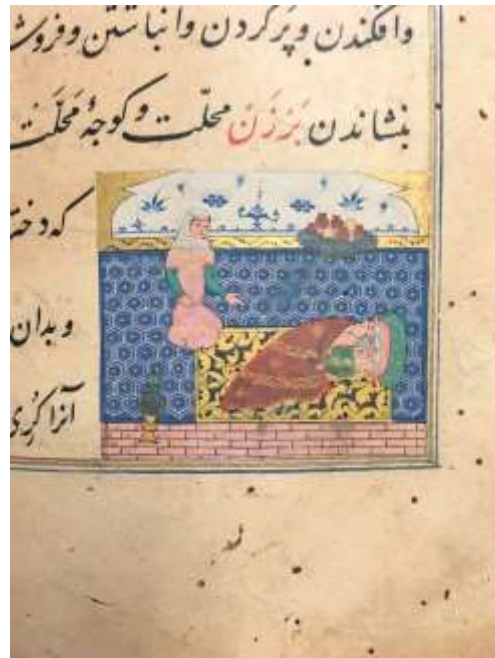 وافکندن و پر کردن و انباشتن و فروش
بنشاندن بَرزَن محلّت و کوچهٔ محلّت
که دختر
و بدان
آنرا کُری